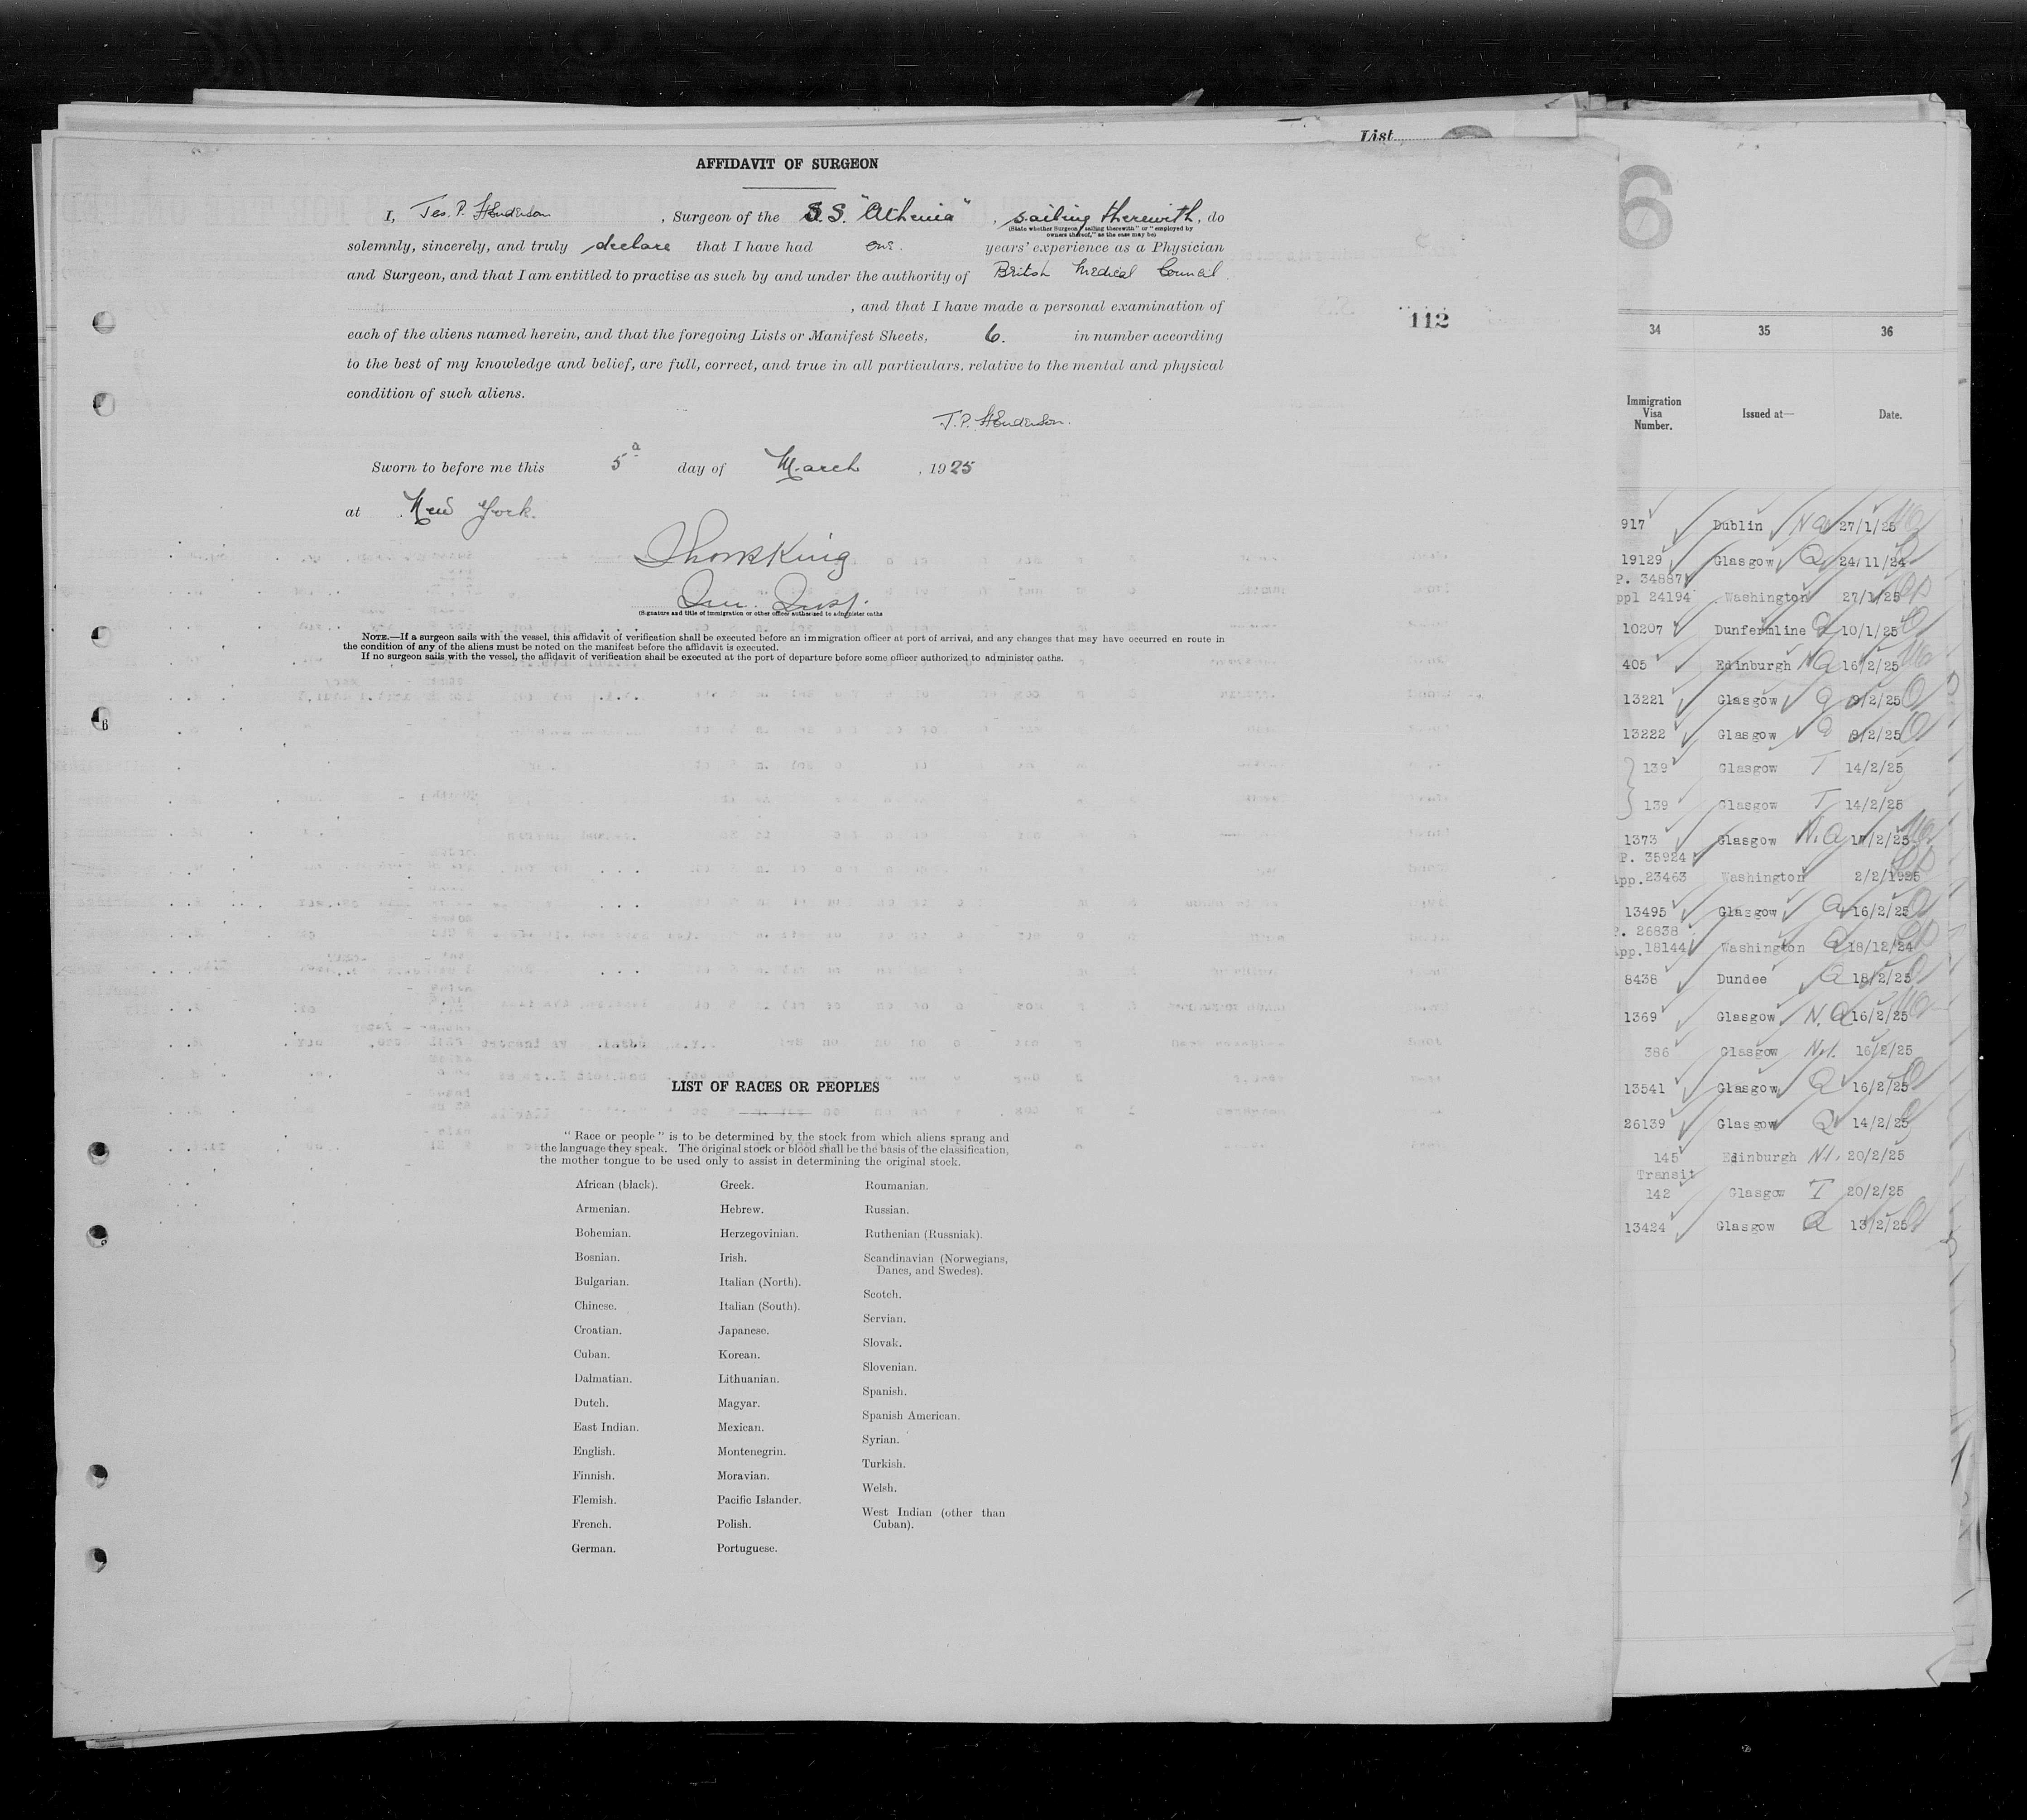 List
AFFIDAVIT OF SURGEON
I, Jas. P. Henderson, Surgeon of the S.S. "Athenia", sailing therewith, do
(State whether Surgeon "sailing therewith" or "employed by
owners thereof," as the case may be)
solemnly, sincerely, and truly declare that I have had one. years' experience as a Physician
and Surgeon, and that I am entitled to practise as such by and under the authority of British Medical Council.
, and that I have made a personal examination of
each of the aliens named herein, and that the foregoing Lists or Manifest Sheets, 6. in number according
to the best of my knowledge and belief, are full, correct, and true in all particulars, relative to the mental and physical
condition of such aliens.
J.P. Henderson.
Sworn to before me this 5 day of March, 1925
at New York.
King
(Signature and title of immigration or other officer authorized to administer oaths
NOTE.—If a surgeon sails with the vessel, this affidavit of verification shall be executed before an immigration officer at port of arrival, and any changes that may have occurred en route in
the condition of any of the aliens must be noted on the manifest before the affidavit is executed.
If no surgeon sails with the vessel, the affidavit of verification shall be executed at the port of departure before some officer authorized to administer oaths.
112
LIST OF RACES OR PEOPLES
"Race or people" is to be determined by the stock from which aliens sprang and
the language they speak. The original stock or blood shall be the basis of the classification,
the mother tongue to be used only to assist in determining the original stock.
African (black).
Armenian.
Bohemian.
Bosnian.
Bulgarian.
Chinese.
Croatian.
Cuban.
Dalmatian.
Dutch.
East Indian.
English.
Finnish.
Flemish.
French.
German.
Greek.
Hebrew.
Herzegovinian.
Irish.
Italian (North).
Italian (South).
Japanese.
Korean.
Lithuanian.
Magyar.
Mexican.
Montenegrin.
Moravian.
Pacific Islander.
Polish.
Portuguese.
Roumanian.
Russian.
Ruthenian (Russniak).
Scandinavian (Norwegians,
Danes, and Swedes).
Scotch.
Servian.
Slovak.
Slovenian.
Spanish.
Spanish American.
Syrian.
Turkish.
Welsh.
West Indian (other than
Cuban).
6
34 35 36
Immigration
Visa
Number.
Issued at—
Date.
917 Dublin NQ 27/1/25
19129 Glasgow Q 24/11/24
P. 34887
ppl 24194 Washington 27/1/25
10207 Dunfermline Q 10/1/25
405 Edinburgh NQ 16/2/25
13221 Glasgow Q 9/2/25
13222 Glasgow Q 9/2/25
139 Glasgow T 14/2/25
139 Glasgow T 14/2/25
1373 Glasgow N.Q 17/2/25
P. 35924
pp.23463 Washington 2/2/1925
13495 Glasgow Q 16/2/25
P. 26838
pp.18144 Washington Q 18/12/24
8438 Dundee Q 18/2/25
1369 Glasgow N.Q 16/2/25
386 Glasgow 16/2/25
13541 Glasgow Q 16/2/25
26139 Glasgow Q 14/2/25
145 Edinburgh 20/2/25
Transit
142 Glasgow T 20/2/25
13424 Glasgow Q 13/2/25